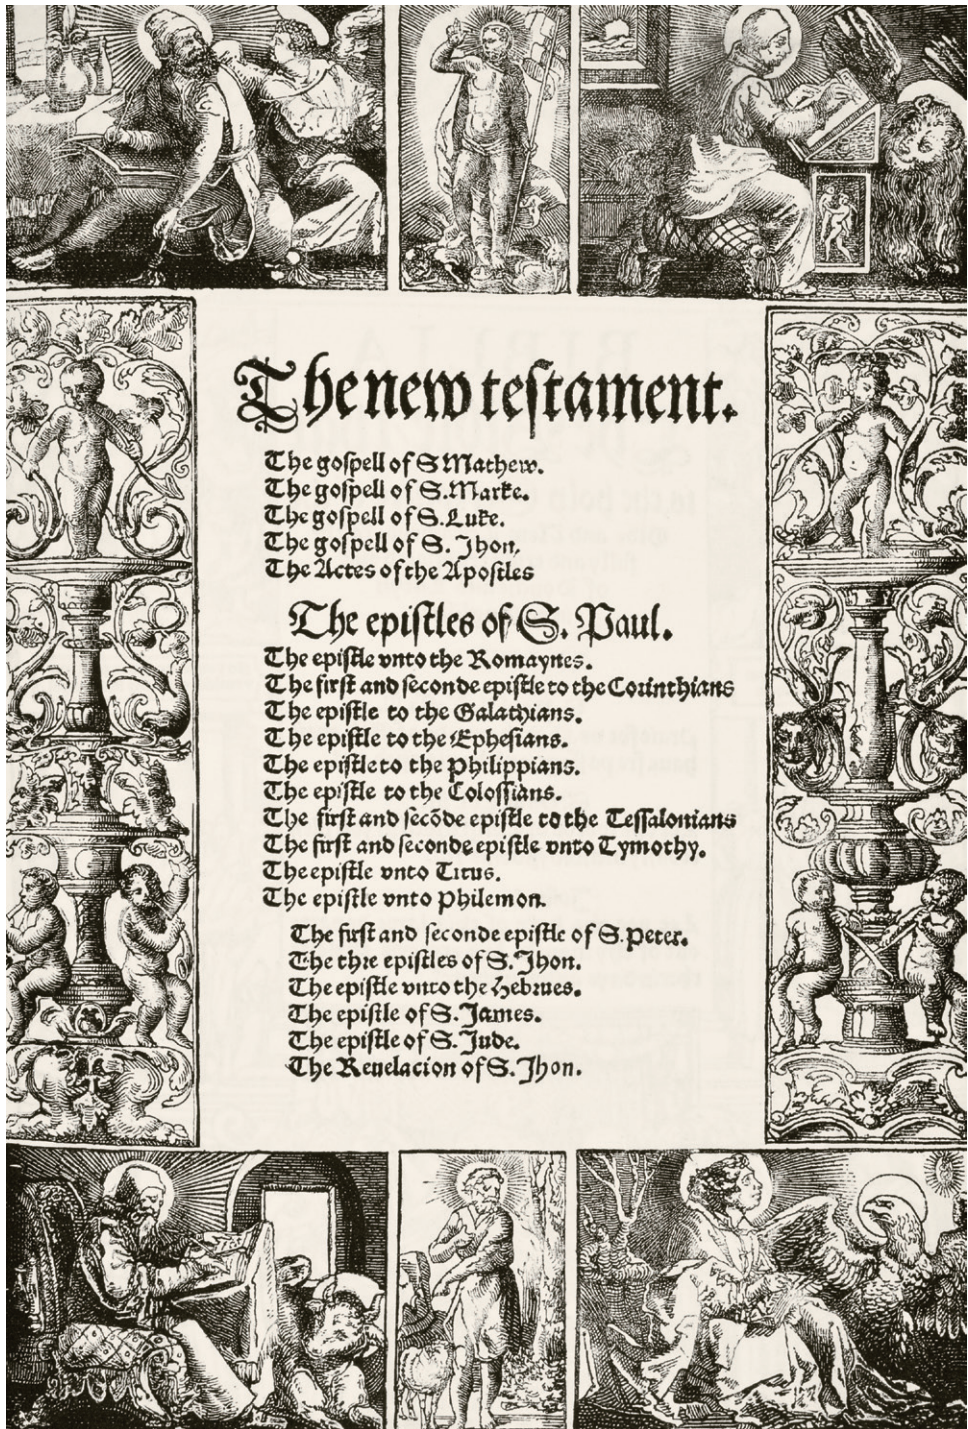 The new testament.
The gospell of S Mathew.
The gospell of S. Marke.
The gospell of S. Luke.
The gospell of S. Jhon.
The Actes of the Apostles
The epistles of S. Paul.
The epistle vnto the Romaynes.
The first and seconde epistle to the Corinthians
The epistle to the Galathians.
The epistle to the Ephesians.
The epistle to the Philippians.
The epistle to the Colossians.
The first and secõde epistle to the Tessalonians
The first and seconde epistle vnto Tymothy.
The epistle vnto Titus.
The epistle vnto Philemon.
The first and seconde epistle of S. Peter.
The thre epistles of S. Jhon.
The epistle vnto the Hebrues.
The epistle of S. James.
The epistle of S. Jude.
The Reuelacion of S. Jhon.